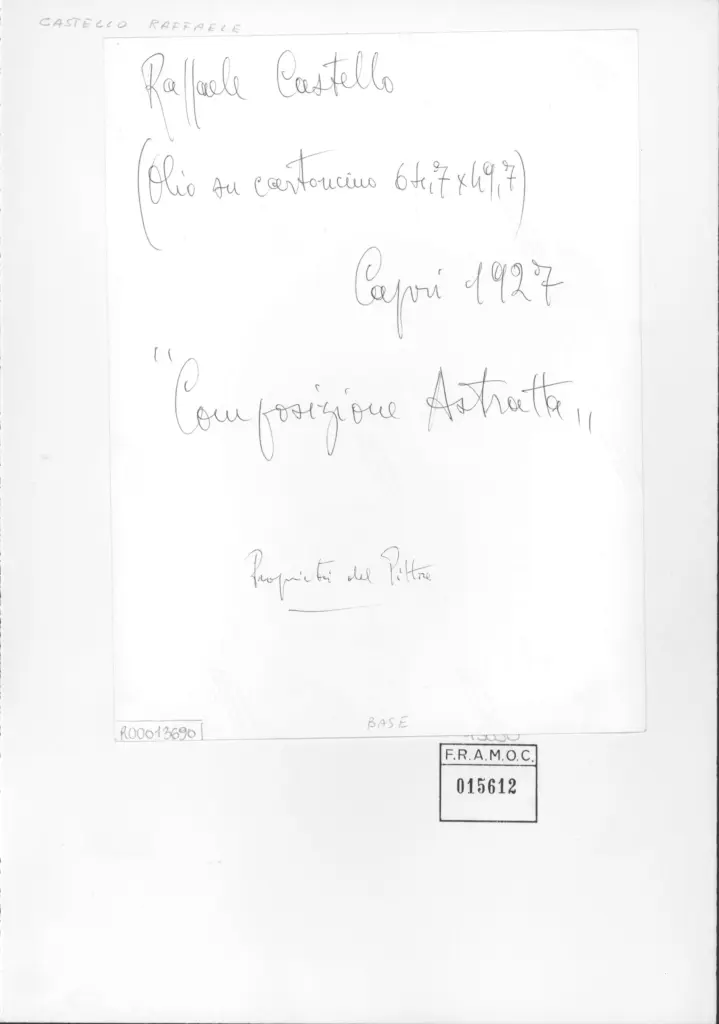 CASTELLO RAFFAELE
Raffaele Castello
(Olio su cartoncino 64,7x49,7)
Capri 1927
"Composizione Astratta"
Proprietà del Pittore
BASE
R00013690
F.R.A.M.O.C.
015612